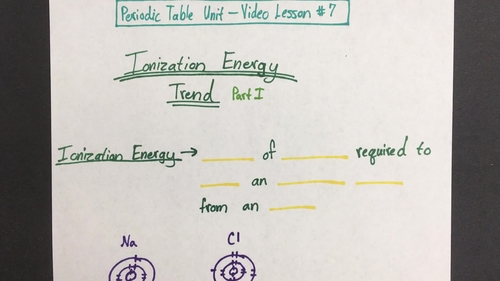 Periodic Table Unit - Video Lesson #7
Ionization Energy
Trend Part I
Ionization Energy → ____ of ____ required to
____ an ____ ____
from an ____
Na Cl